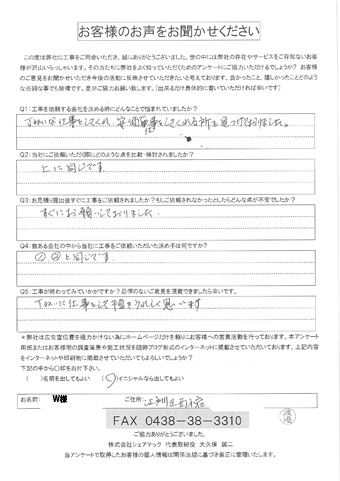 お客様のお声をお聞かせください
この度は弊社に工事をご用命いただき、誠にありがとうございました。世の中には弊社の存在やサービスをご存知ないお客
様が沢山いらっしゃいます。その方たちに弊社をよく知っていただくためのアンケートにご協力いただけるでしょうか？ お客様
のご意見をお聞かせいただき今後の活動に反映させていただきたいと考えております。良かったこと、嬉しかったことどのよう
な些細な事でも結構です。是非ご協力お願い致します。（出来るだけ具体的に書いていただければ幸いです）
Q1：工事を依頼する会社を決める時にどんなことで悩まれていましたか？
Q2：当社にご依頼いただく際にどのような点を比較・検討されましたか？
上に同じです
Q3：お見積り提出後すぐに工事をご依頼されましたか？もしご依頼されなかったとしたらどんな点が不安でしたか？
すぐにお願いしておりました
Q4：数ある会社の中から当社に工事をご依頼いただいた決め手は何ですか？
① ②と同じです
Q5：工事が終わってみていかがですか？忌憚のないご意見を頂戴できましたら幸いです。
＊弊社は広告宣伝費を極力かけない為にホームページだけを頼りにお客様への営業活動を行っております。本アンケート
用紙またはお客様宅の調査風景や施工状況を随時ブログ形式のインターネットに掲載させていただいております。上記内容
をインターネットや印刷物に掲載させていただいてもよろしいでしょうか？
下記の中から○印をお付下さい。
（ ）名前を出してもよい （○）イニシャルなら出してもよい
お名前： W様 ご住所：
FAX 0438-38-3310
ご協力ありがとうございました。
株式会社シェアテック 代表取締役 大久保 誠二
当アンケートで取得したお客様の個人情報は関係法規に基づき厳正に管理いたします。